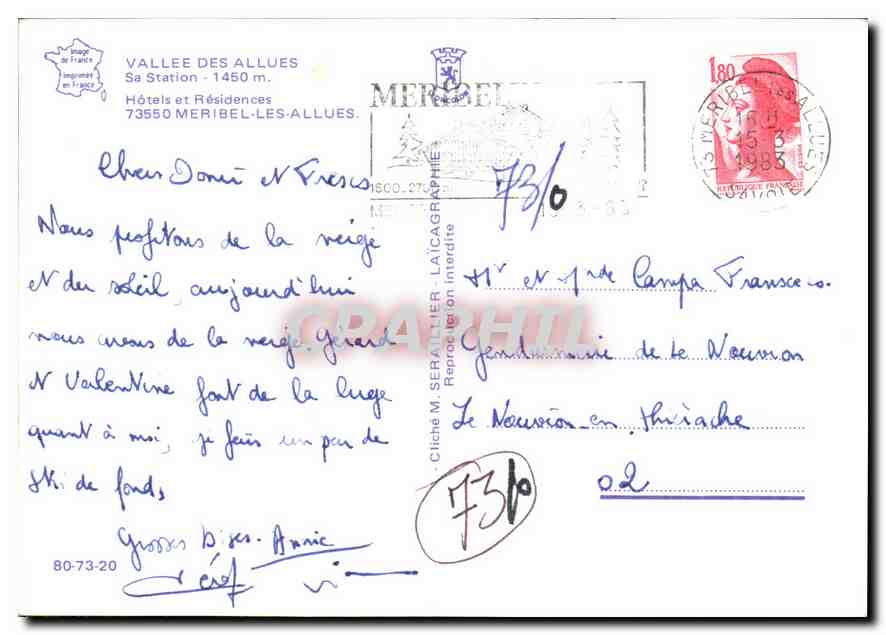 Image
de France
Imprimée
en France
VALLEE DES ALLUES
Sa Station - 1450 m.
Hôtels et Résidences
73550 MERIBEL-LES-ALLUES.
MERIBEL
1,80
REPUBLIQUE FRANÇAISE
73 MERIBEL LES ALLUES
15 H
15-3
1983
SAVOIE
73/0
Chers et Frescs
Nous profitons de la neige
et du soleil, aujourd'hui
nous avons de la neige. Gérard
et Valentine font de la luge
quant à moi, je fais un peu de
ski de fond,
Grosses bises. Annie
Gérard
80-73-20
Cliché M. SERAILLIER - LAÏCAGRAPHIE
Reproduction interdite
Mr et Mde Campa Fransces.
Gendarmerie de Le Nouvion
Le Nouvion-en-Thiérache
02
73/0
CPAPHIL